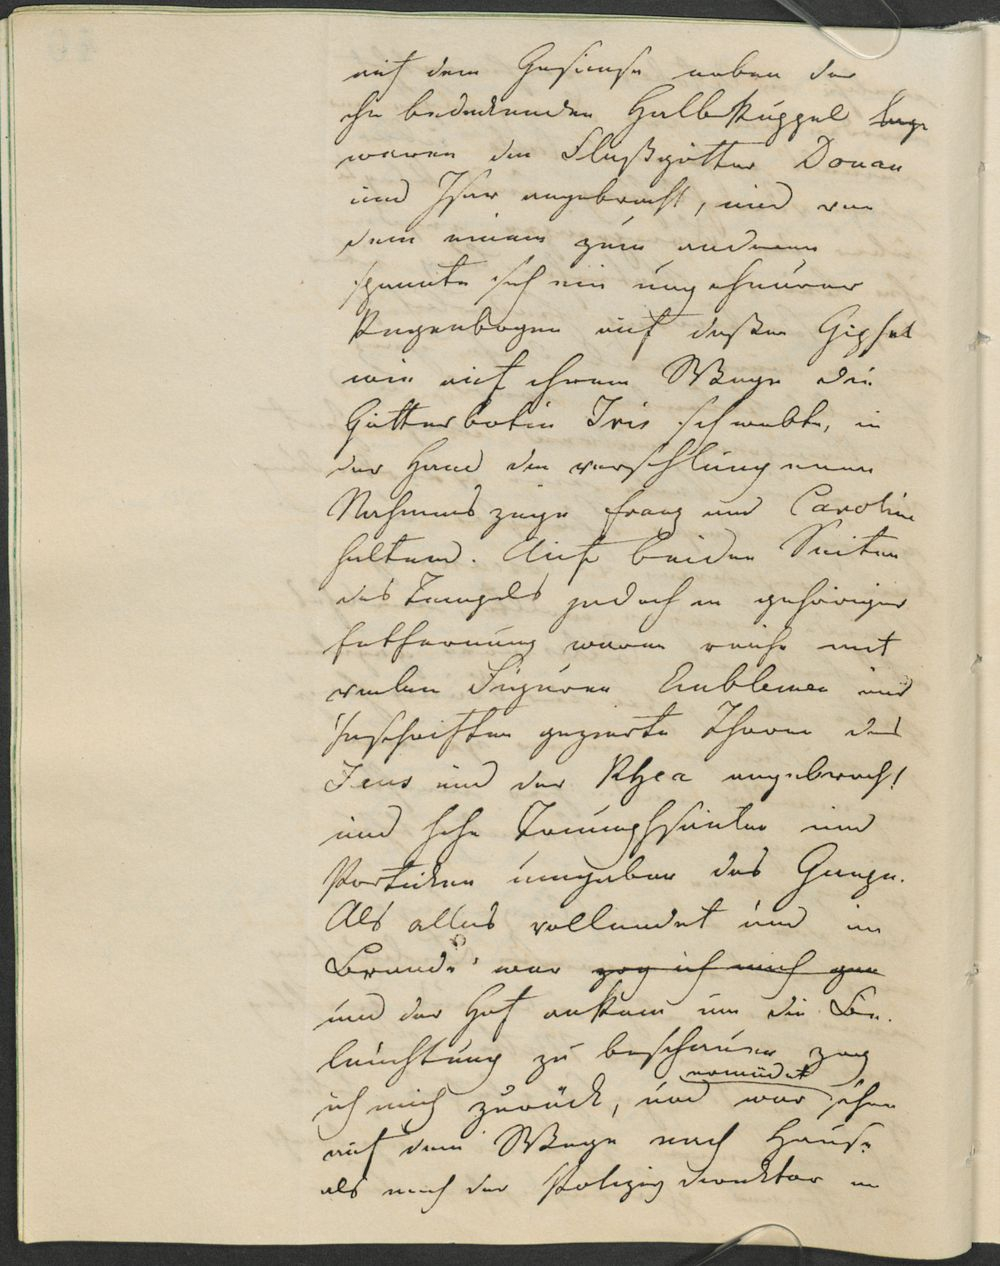 auf dem Gesimse neben der
ihr bedeckenden Halbkuppel
waren die Flußgötter Donau
und Isar angebracht, und von
dem einem zum anderen
spannte sich ein ungeheurer
Regenbogen auf deßen Gipfel
wie auf ihrem Wege die
Götterbotin Iris schwebte, in
der Hand die verschlungenen
Nahmenszüge Franz und Caroline
haltend. Auf beiden Seiten
des Tempels jedoch in gehöriger
Entfernung waren reich mit
vielen Figuren Emblemen und
Inschriften gezierte Throne des
Zeus und der Rhea angebracht
und hohe Triumphsäulen und
Portiken umgaben das Ganze.
Als alles vollendet und im
Brande war zog ich mich
und der Hof ankam um die Be-
leuchtung zu beschauen zog
ermüdet
ich mich zurück, und war schon
auf dem Wege nach Hause
als mich der Polizey direktor